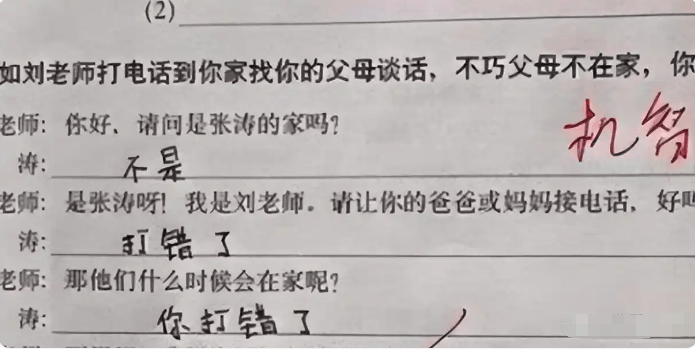 (2)
如刘老师打电话到你家找你的父母谈话，不巧父母不在家，你
老师：你好，请问是张涛的家吗？
机智
涛：不是
老师：是张涛呀！我是刘老师。请让你的爸爸或妈妈接电话，好吗
涛：打错了
老师：那他们什么时候会在家呢？
涛：你打错了